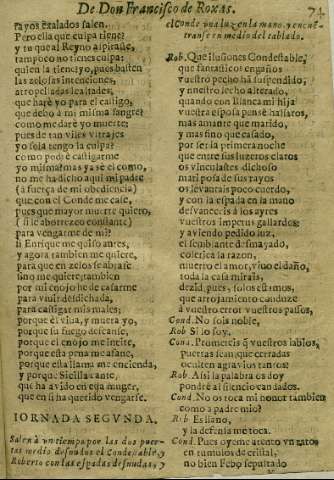 De Don Francisco de Roxas. 74
rayos exalados salen.
Pero ella que culpa tiene?
y tu que al Reyno aspiraste,
tampoco no tienes culpa:
quien la tiene? yo, pues basten
las zelosas intenciones,
atropelladas lealtades;
que harè yo para el castigo,
que debo à mi misma sangre?
como me darè yo muerte;
pues de tan viles vltrajes
yo sola tengo la culpa?
como podrè castigarme
yo misma? mas ya sè el como,
no me ha dicho aqui mi padre
(à fuerça de mi obediencia)
que con el Conde me case,
pues que mayor muerte quiero,
(si le aborrezco constante)
para vengarme de mi?
Si Enrique me quiso antes,
y agora tambien me quiere,
para que en zelos se abrase
sino me quiere; tambien
por mi enojo he de casarme
para viuir desdichada,
para castigar mis males;
porque èl viua, y muera yo,
porque su fuego descanse,
porque el enojo me incite,
porque esta pena me afane,
porque esta llama me encienda,
y porque Sicilia cante,
que ha avido en esta muger,
que en si ha querido vengarse.
IORNADA SEGVNDA.
Salen à vn tiempo por las dos puer-
tas medio desnudos el Condestable, y
Roberto con las espadas desnudas, y
el Conde vna luz en la mano, y encuen-
transe en medio del tablado.
Rob. Que ilusiones Condestable,
que fantasticos engaños
vuestro pecho ha suspendido,
y vuestro lecho alterado,
quando con Blanca mi hija
vuestra esposa pensè hallaros,
mas amante que marido,
y mas fino que casado,
por ser la primera noche
que entre sus luzeros claros
os vinculastes dichoso
mariposa de sus rayos,
os levantais poco cuerdo,
y con la espada en la mano
desvaneceis à los ayres
vuestros impetus gallardos:
y aviendo pedido luz,
el semblante desmayado,
colerica la razon,
muerto el amor, vivo el daño,
toda la casa mirais,
dezid, pues, solos estamos,
que arrojamiento conduze
à vuestro error vuestros passos,
Cond. No sois noble,
Rob Si lo soy.
Cond. Prometeis q̃ vuestros labios,
puertas sean que cerradas
oculten agravios tantos:
Rob. Assi la palabra os doy
pondrè al silencio candados.
Cond. No os toca mi honor tambien
como à padre mio?
Rob Es llano,
y la defensa me toca.
Cond. Pues oyeme atento vn rato
en tumulos de cristal,
no bien Febo sepultado